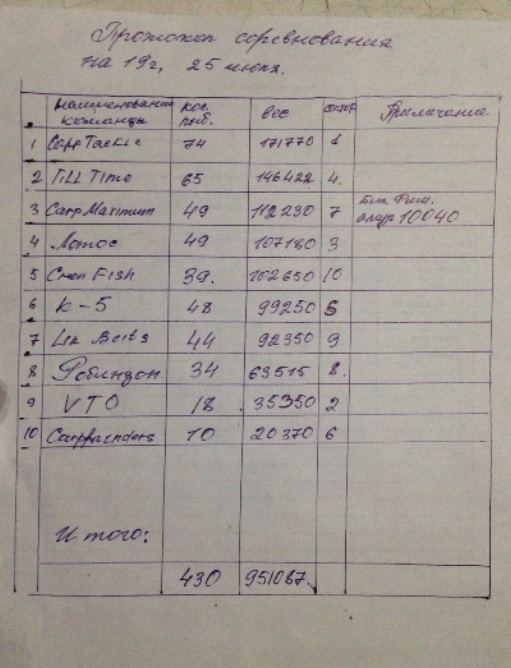 Протокол соревнования
на 19ч, 25 июля.
наименование команды кол. рыб. вес сектор Примечание.
1 Carp Tackle 74 171770 1
2 Till Time 65 146422 4.
3 Carp Maximum 49 112230 7 Биг Фиш. амур 10040
4 Лотос 49 107180 3
5 Fish 39. 102650 10
6 К-5 48 99250 5
7 Baits 44 92350 9
8 Робинзон 34 63515 8.
9 VTO 18 35350 2
10 Carpfaenders 10 20370 6
Итого:
430 951087.